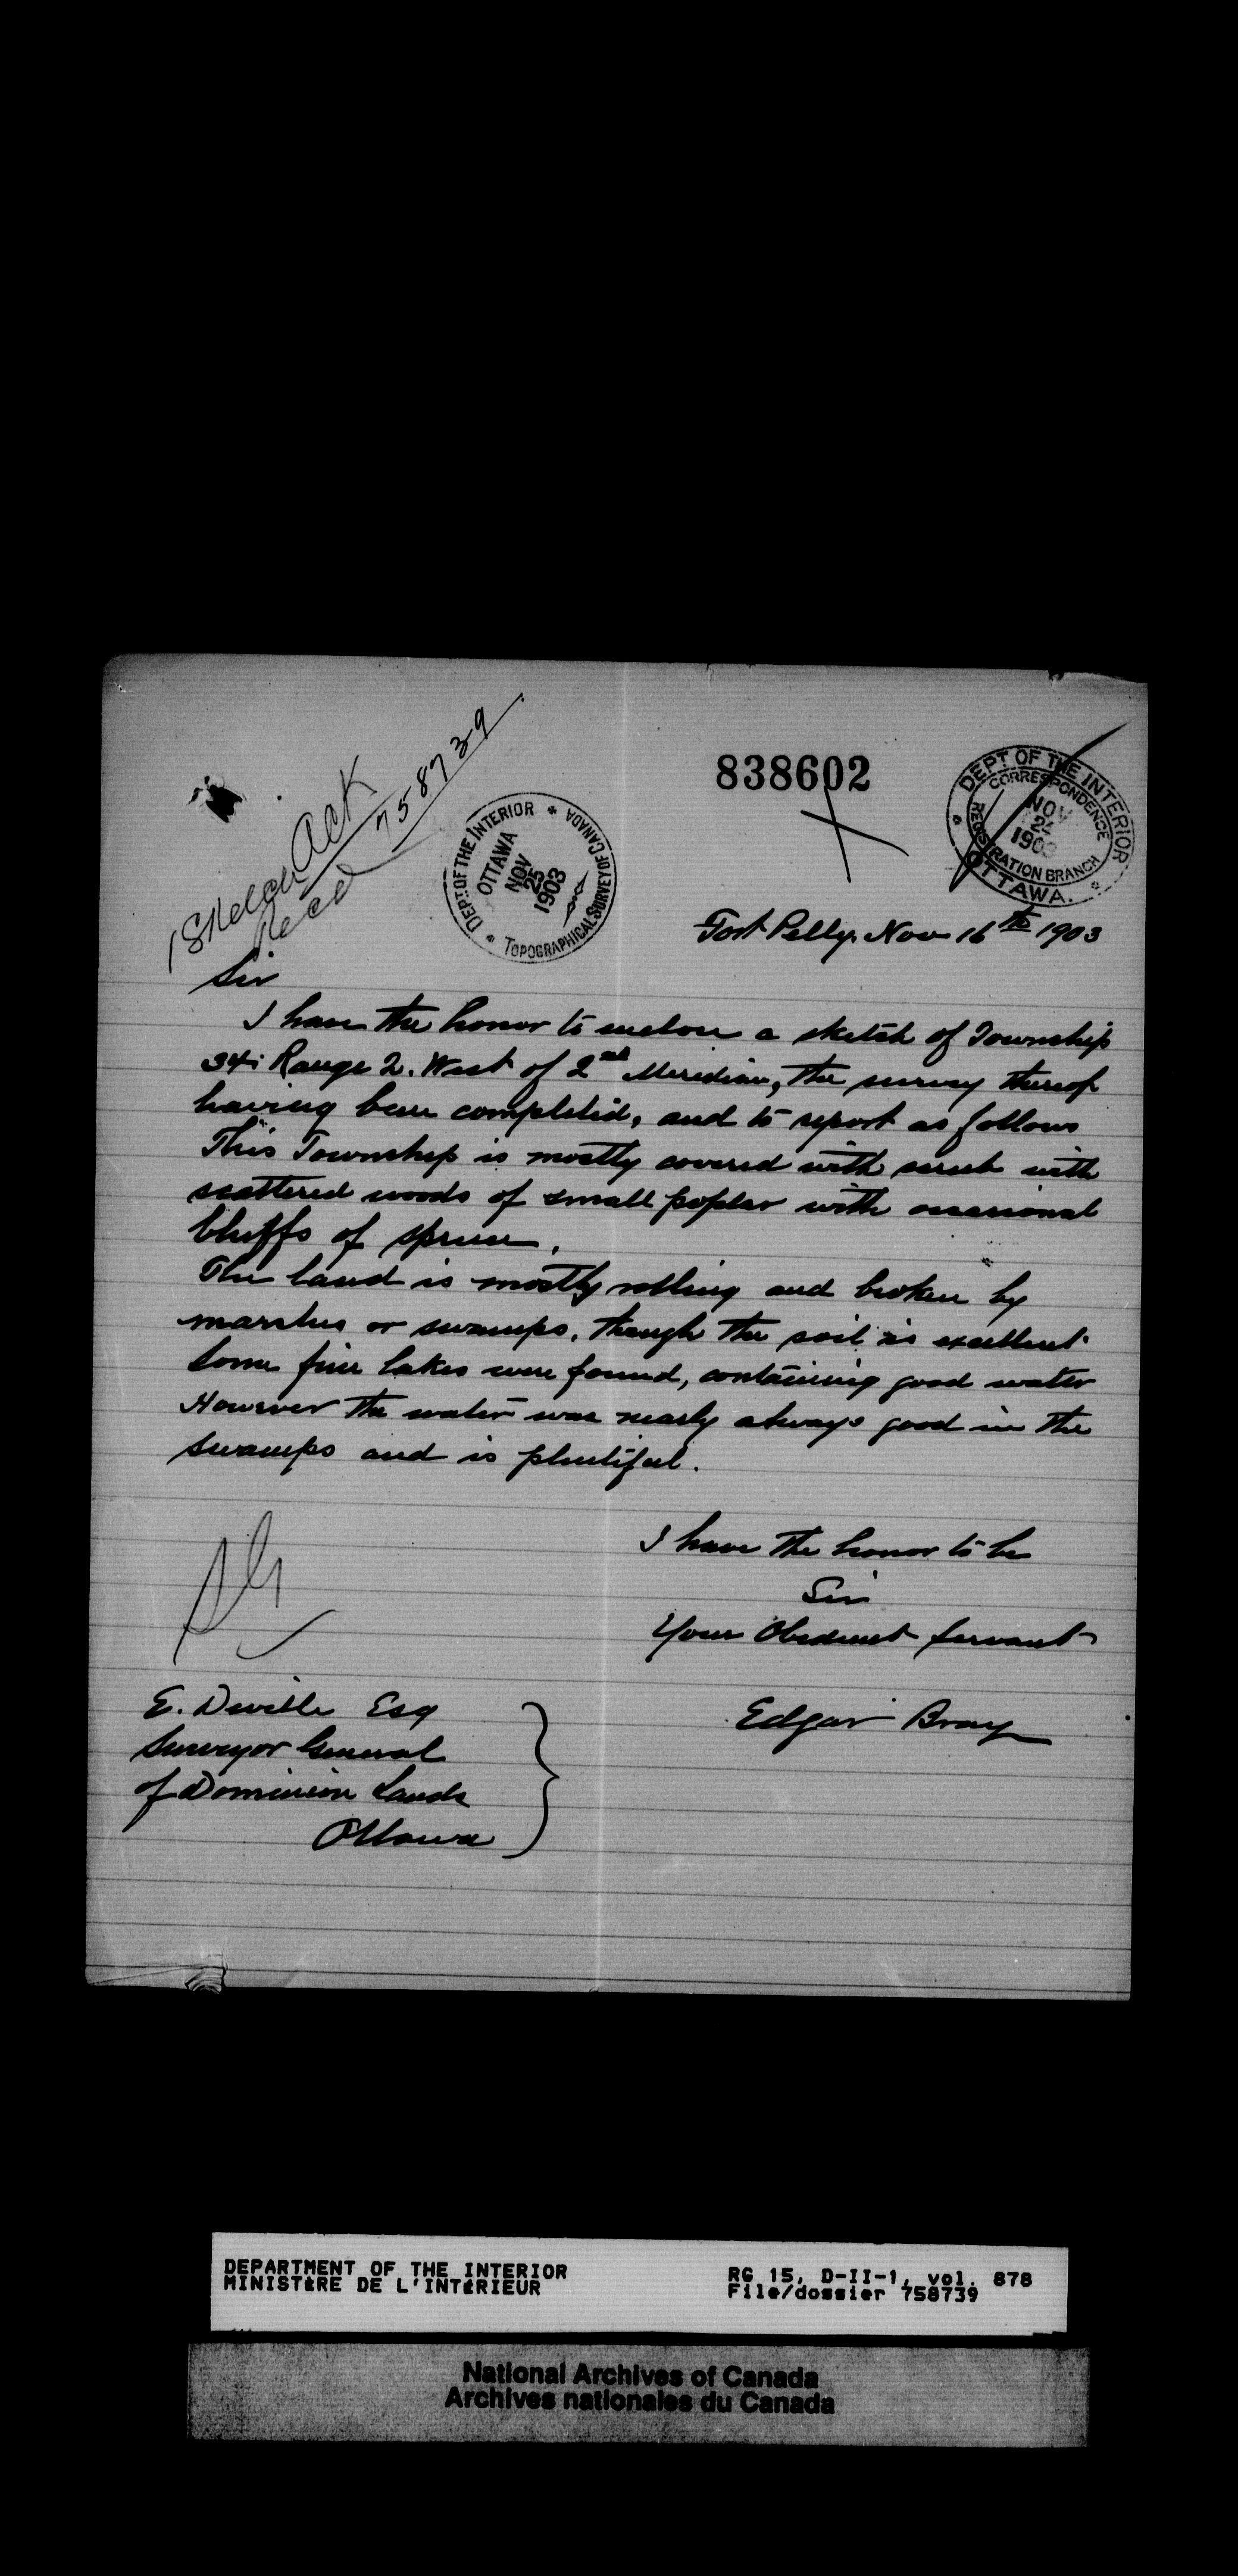 Ack
758739
1 Sketch
Recd
DEPT. OF THE INTERIOR * TOPOGRAPHICAL SURVEY OF CANADA *
OTTAWA
NOV
25
1903
838602
DEPT OF THE INTERIOR * OTTAWA. *
CORRESPONDENCE
REGISTRATION BRANCH
NOV
24
1903
Fort Pelly, Nov 16th 1903
Sir
I have the honor to enclose a sketch of Township
34. Range 2. West of 2nd Meridian, the survey thereof
having been completed, and to report as follows
This Township is mostly covered with scrub with
scattered woods of small poplar with occasional
bluffs of spruce.
The land is mostly rolling and broken by
marshes or swamps, though the soil is excellent.
Some fine lakes were found, containing good water
However the water was nearly always good in the
swamps and is plentiful.
I have the honor to be
Sir
Your Obedient Servant
Edgar Bray
E. Deville Esq
Surveyor General
of Dominion Lands
Ottawa
DEPARTMENT OF THE INTERIOR
MINISTÈRE DE L'INTÉRIEUR
RG 15, D-II-1, vol. 878
File/dossier 758739
National Archives of Canada
Archives nationales du Canada